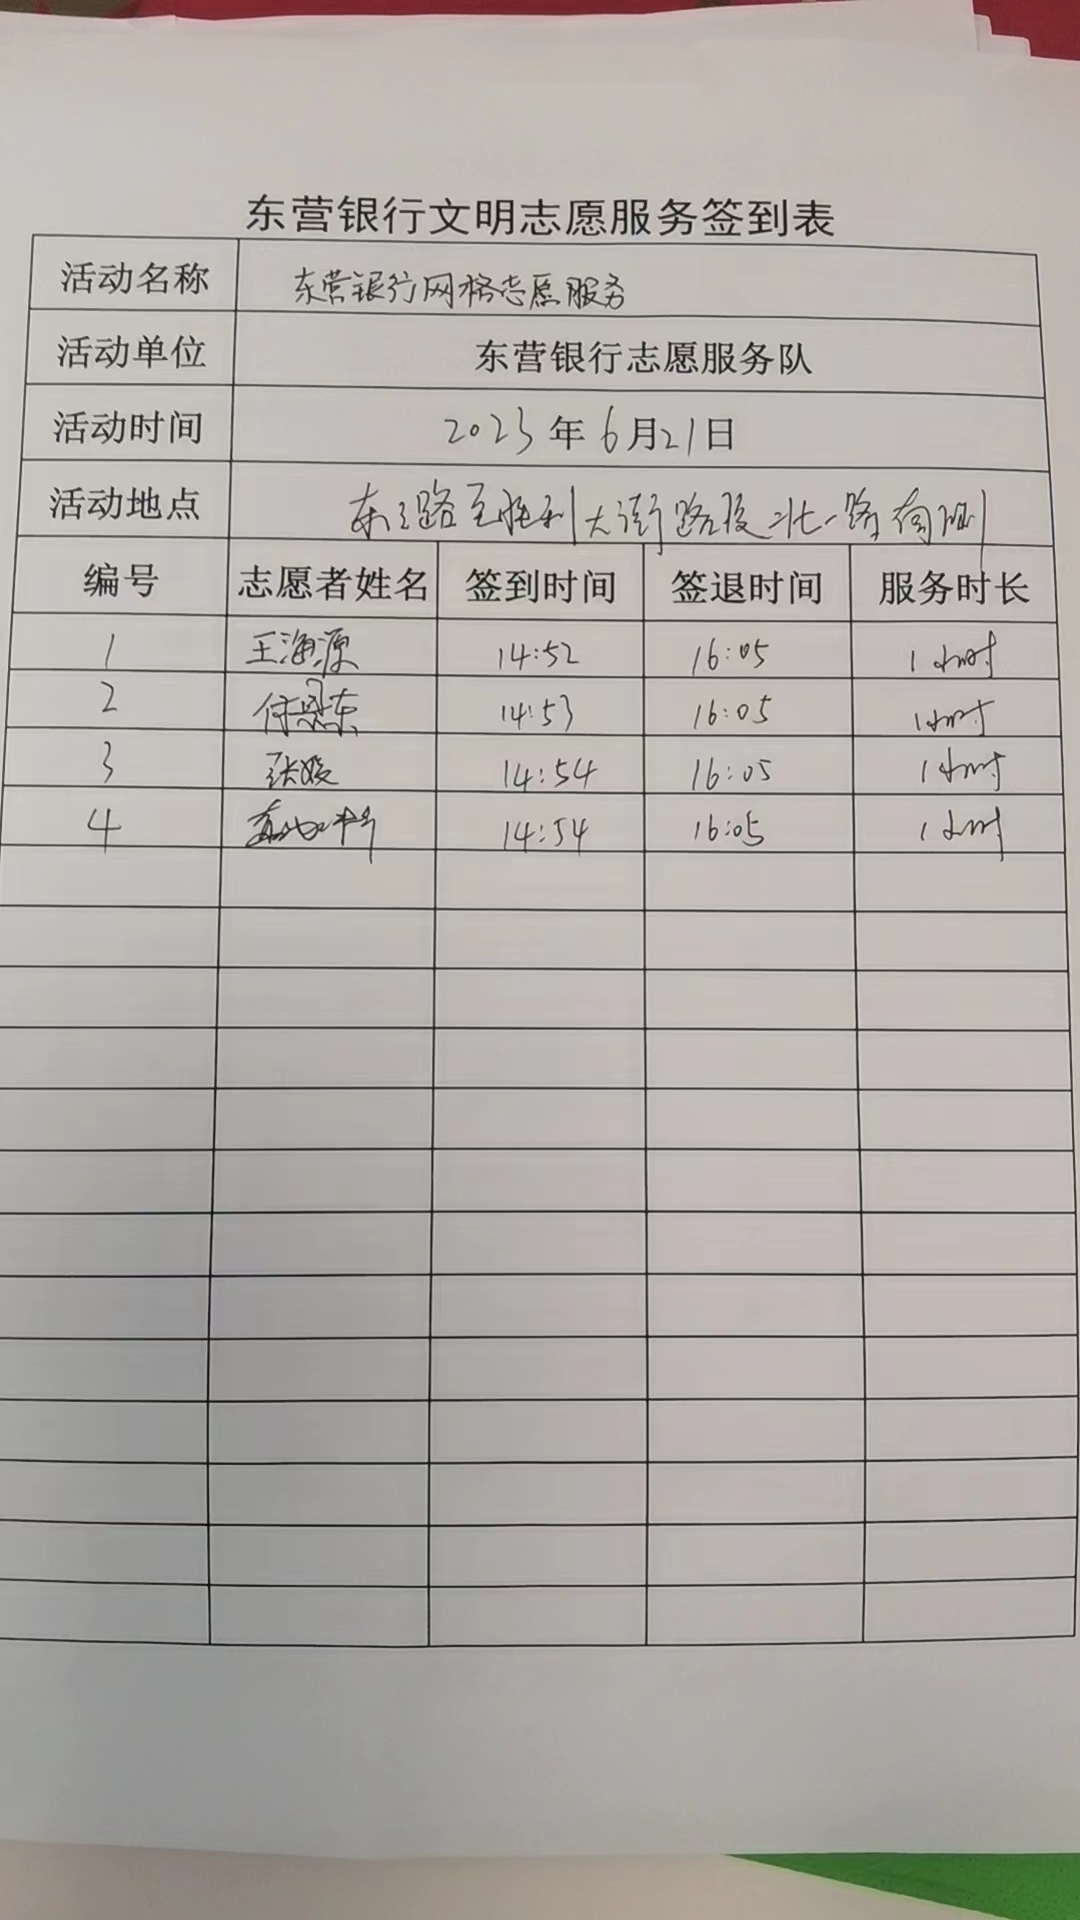 东营银行文明志愿服务签到表
活动名称 东营银行网格志愿服务
活动单位 东营银行志愿服务队
活动时间 2023年6月21日
活动地点 东三路至胜利大街路段北一路南侧
编号 志愿者姓名 签到时间 签退时间 服务时长
1 王海源 14:52 16:05 1小时
2 付恩东 14:53 16:05 1小时
3 张媛 14:54 16:05 1小时
4 14:54 16:05 1小时